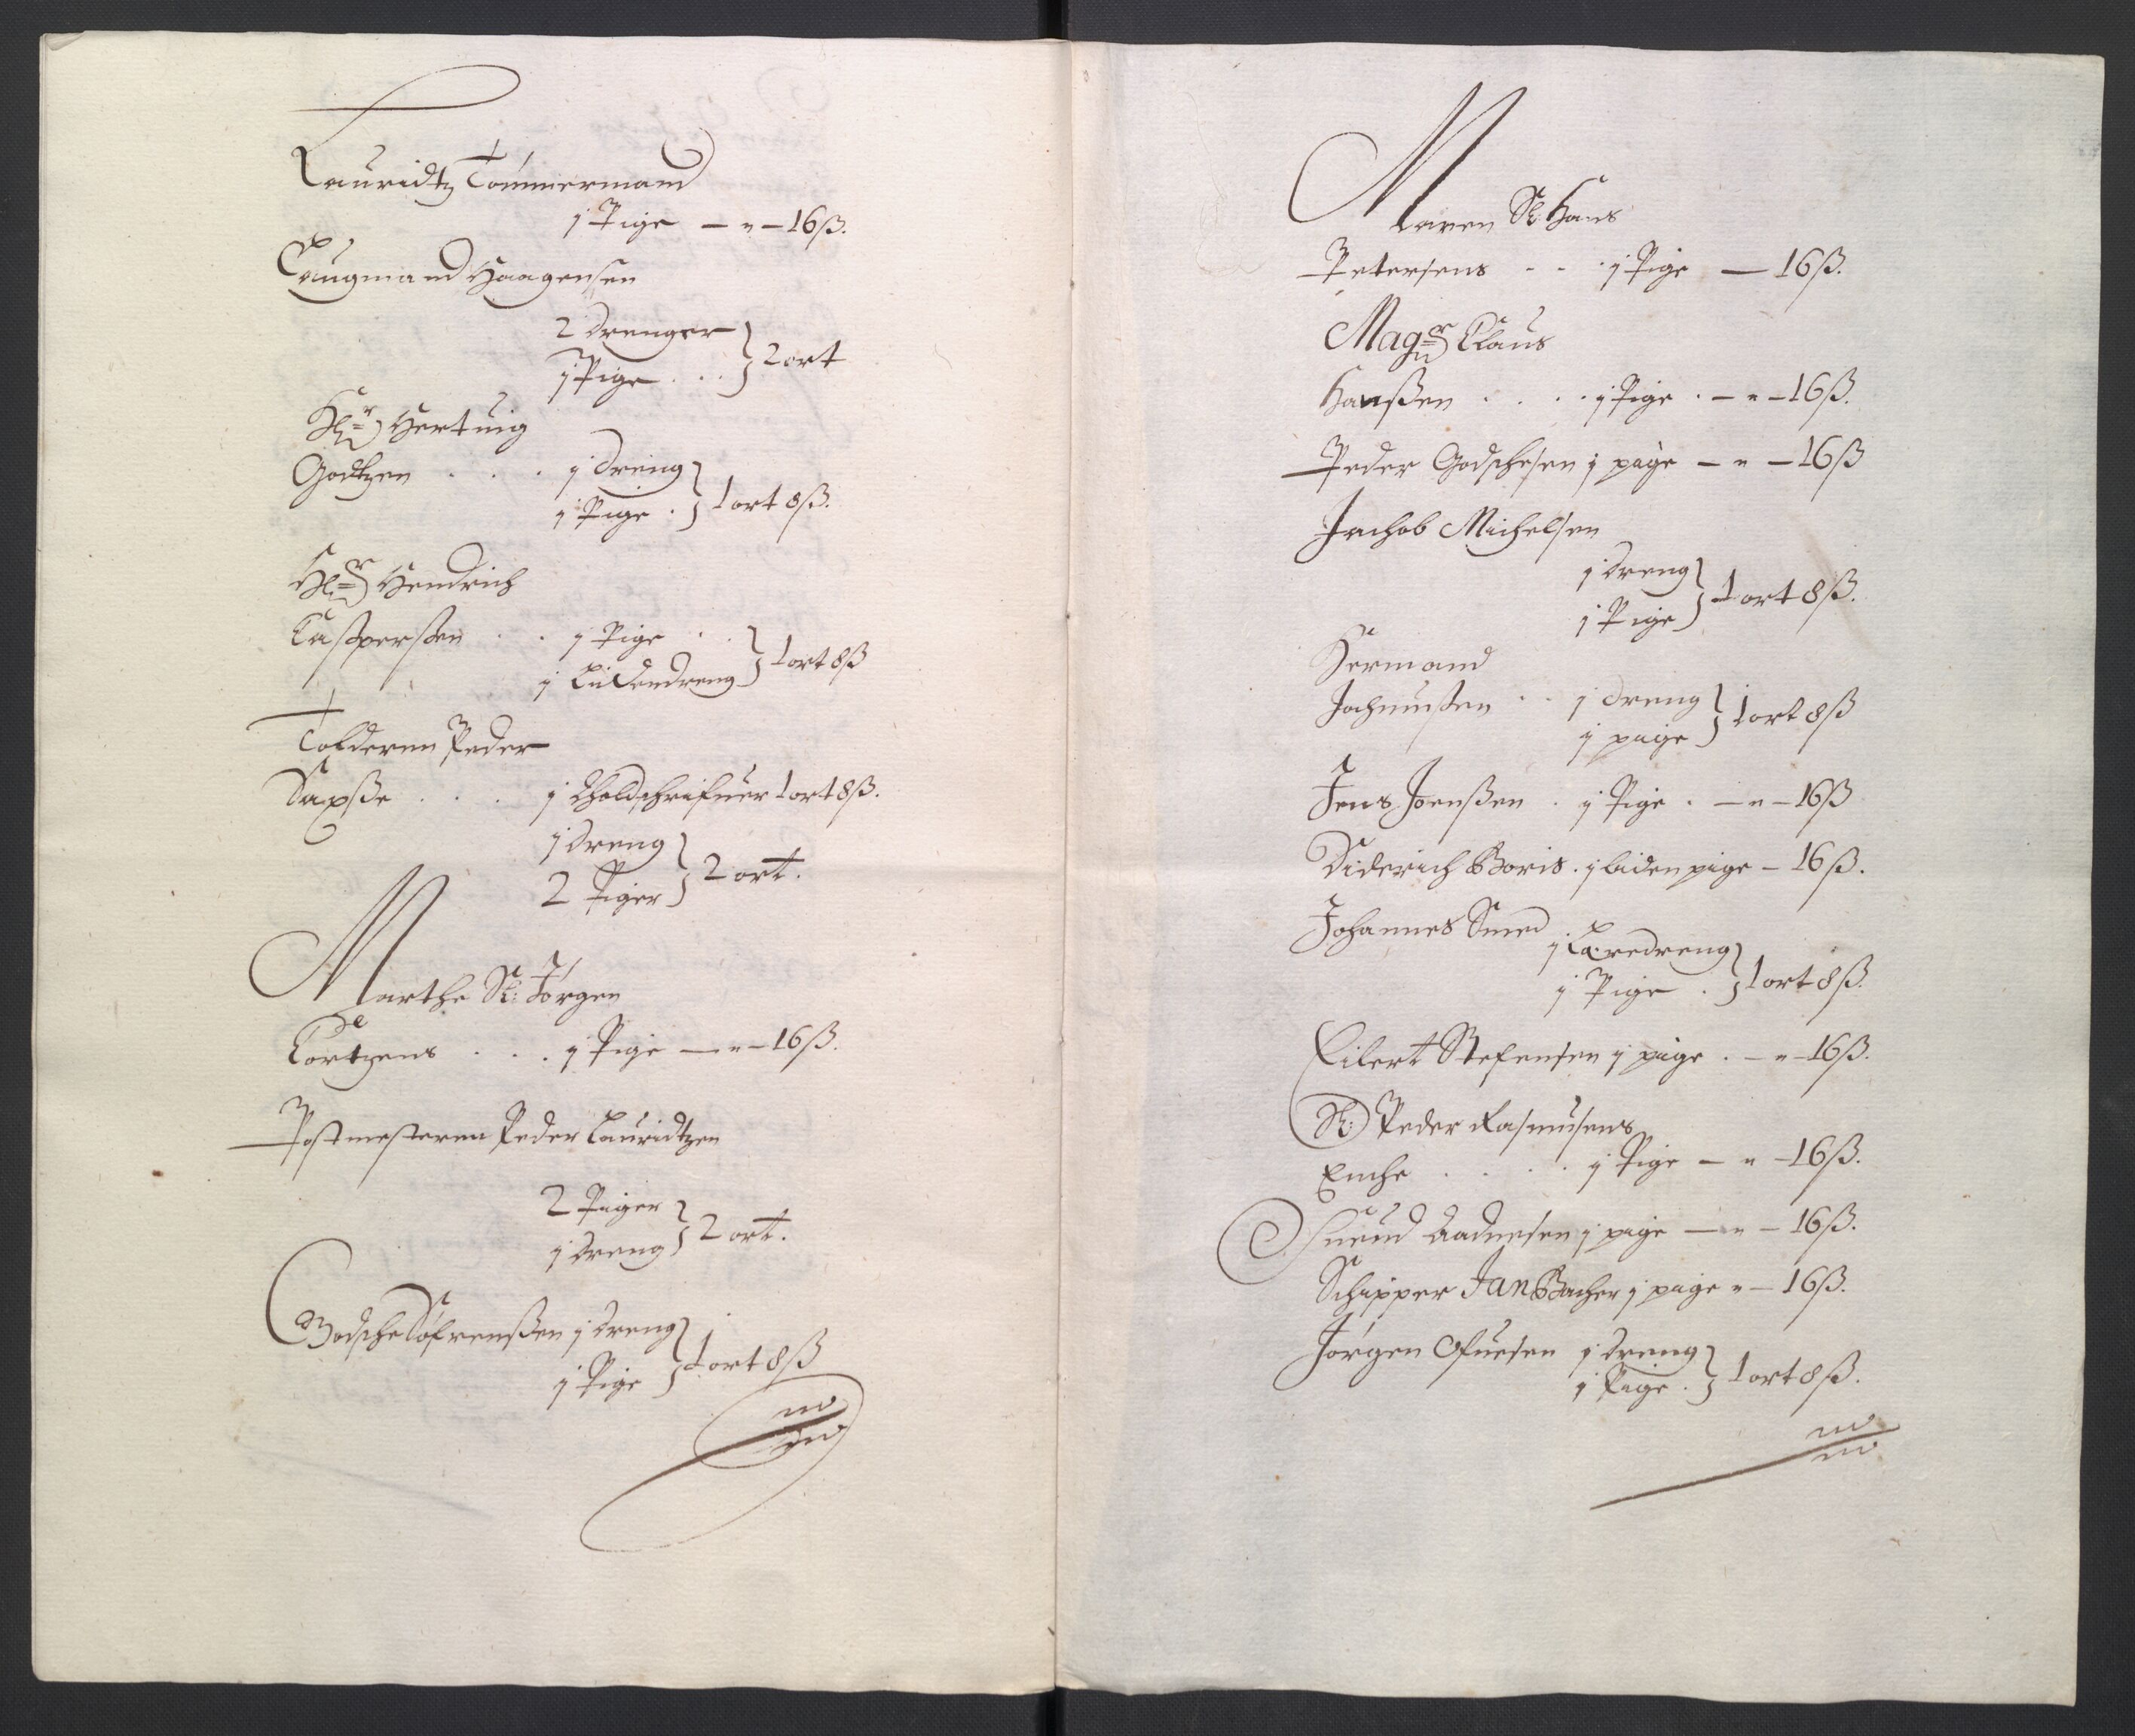 Lauridtz Tømmermand
1 Pige — " — 16 ß.
Laugmand Haagensen
2 drenger
1 Pige . . . } 2 ort
Hr Hertuig
Godtzen . . . 1 dreng
1 Pige . } 1 ort 8 ß.
Hr Hendrich
Casperßen . . 1 Pige . .
1 Liden dreng } 1 ort 8 ß
Tolderen Peder
Saxße . . . 1 Tholdschrifuer 1 ort 8 ß.
1 dreng
2 Piger } 2 ort.
Marthe Sl: Jørgen
Cortzens . . . 1 Pige — " — 16 ß.
Postmesteren Peder Lauridtzen
2 Piger
1 dreng } 2 ort.
Godsche Søfrenßen 1 dreng
1 Pige } 1 ort 8 ß
Maren Sl: Hans
Petersens - - . 1 Pige — 16 ß.
Magr Claus
Hanßen . . . . 1 Pige . — " — 16 ß.
Peder Godschesen 1 pige — " — 16 ß
Jachob Michelsen
1 dreng
1 Pige } 1 ort 8 ß.
Hermand
Jochumßen . . 1 dreng
1 pige } 1 ort 8 ß
Jens Joenßen . 1 Pige . — " — 16 ß
Diderich Boris . 1 liden pige — 16 ß.
Johannes Smed
1 Læredreng
1 Pige . } 1 ort 8 ß.
Eilert Stefensen 1 pige . — " — 16 ß.
Sl: Peder Rasmusens
Enche . . . . 1 Pige — " — 16 ß.
Suend Aadnesen 1 pige — " — 16 ß.
Schipper Jan Bacher 1 pige " — 16 ß.
Jørgen Ofuesen 1 dreng
1 Pige . } 1 ort 8 ß.